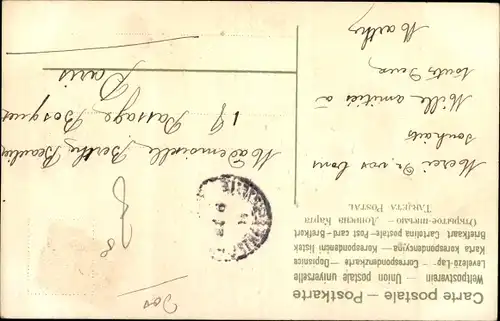 Carte postale — Postkarte
Weltpostverein — Union postale universelle
Levelező-Lap — Correspondenzkarte — Dopisnice
Karta korespondencyjna — Korespondenční lístek
Briefkaart — Cartolina postale — Post card — Brefkort
Открытое письмо — Дописна Карта
TARJETA POSTAL
Merci de vos bons
souhaits
Mille amitiés à
toutes deux
Marthe
Mademoiselle Berthe Beaulieu
19 Passage Bosquet
Paris